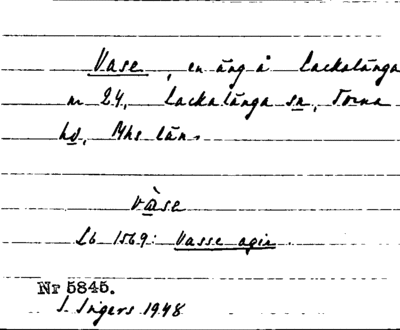 Vase, en äng å Lackalänga
nr 24, Lackalänga sn, Torna
hd, Mhs län.
vàse
Lb 1569: Vasse agin
Nr 5845.
I. Ingers 1948